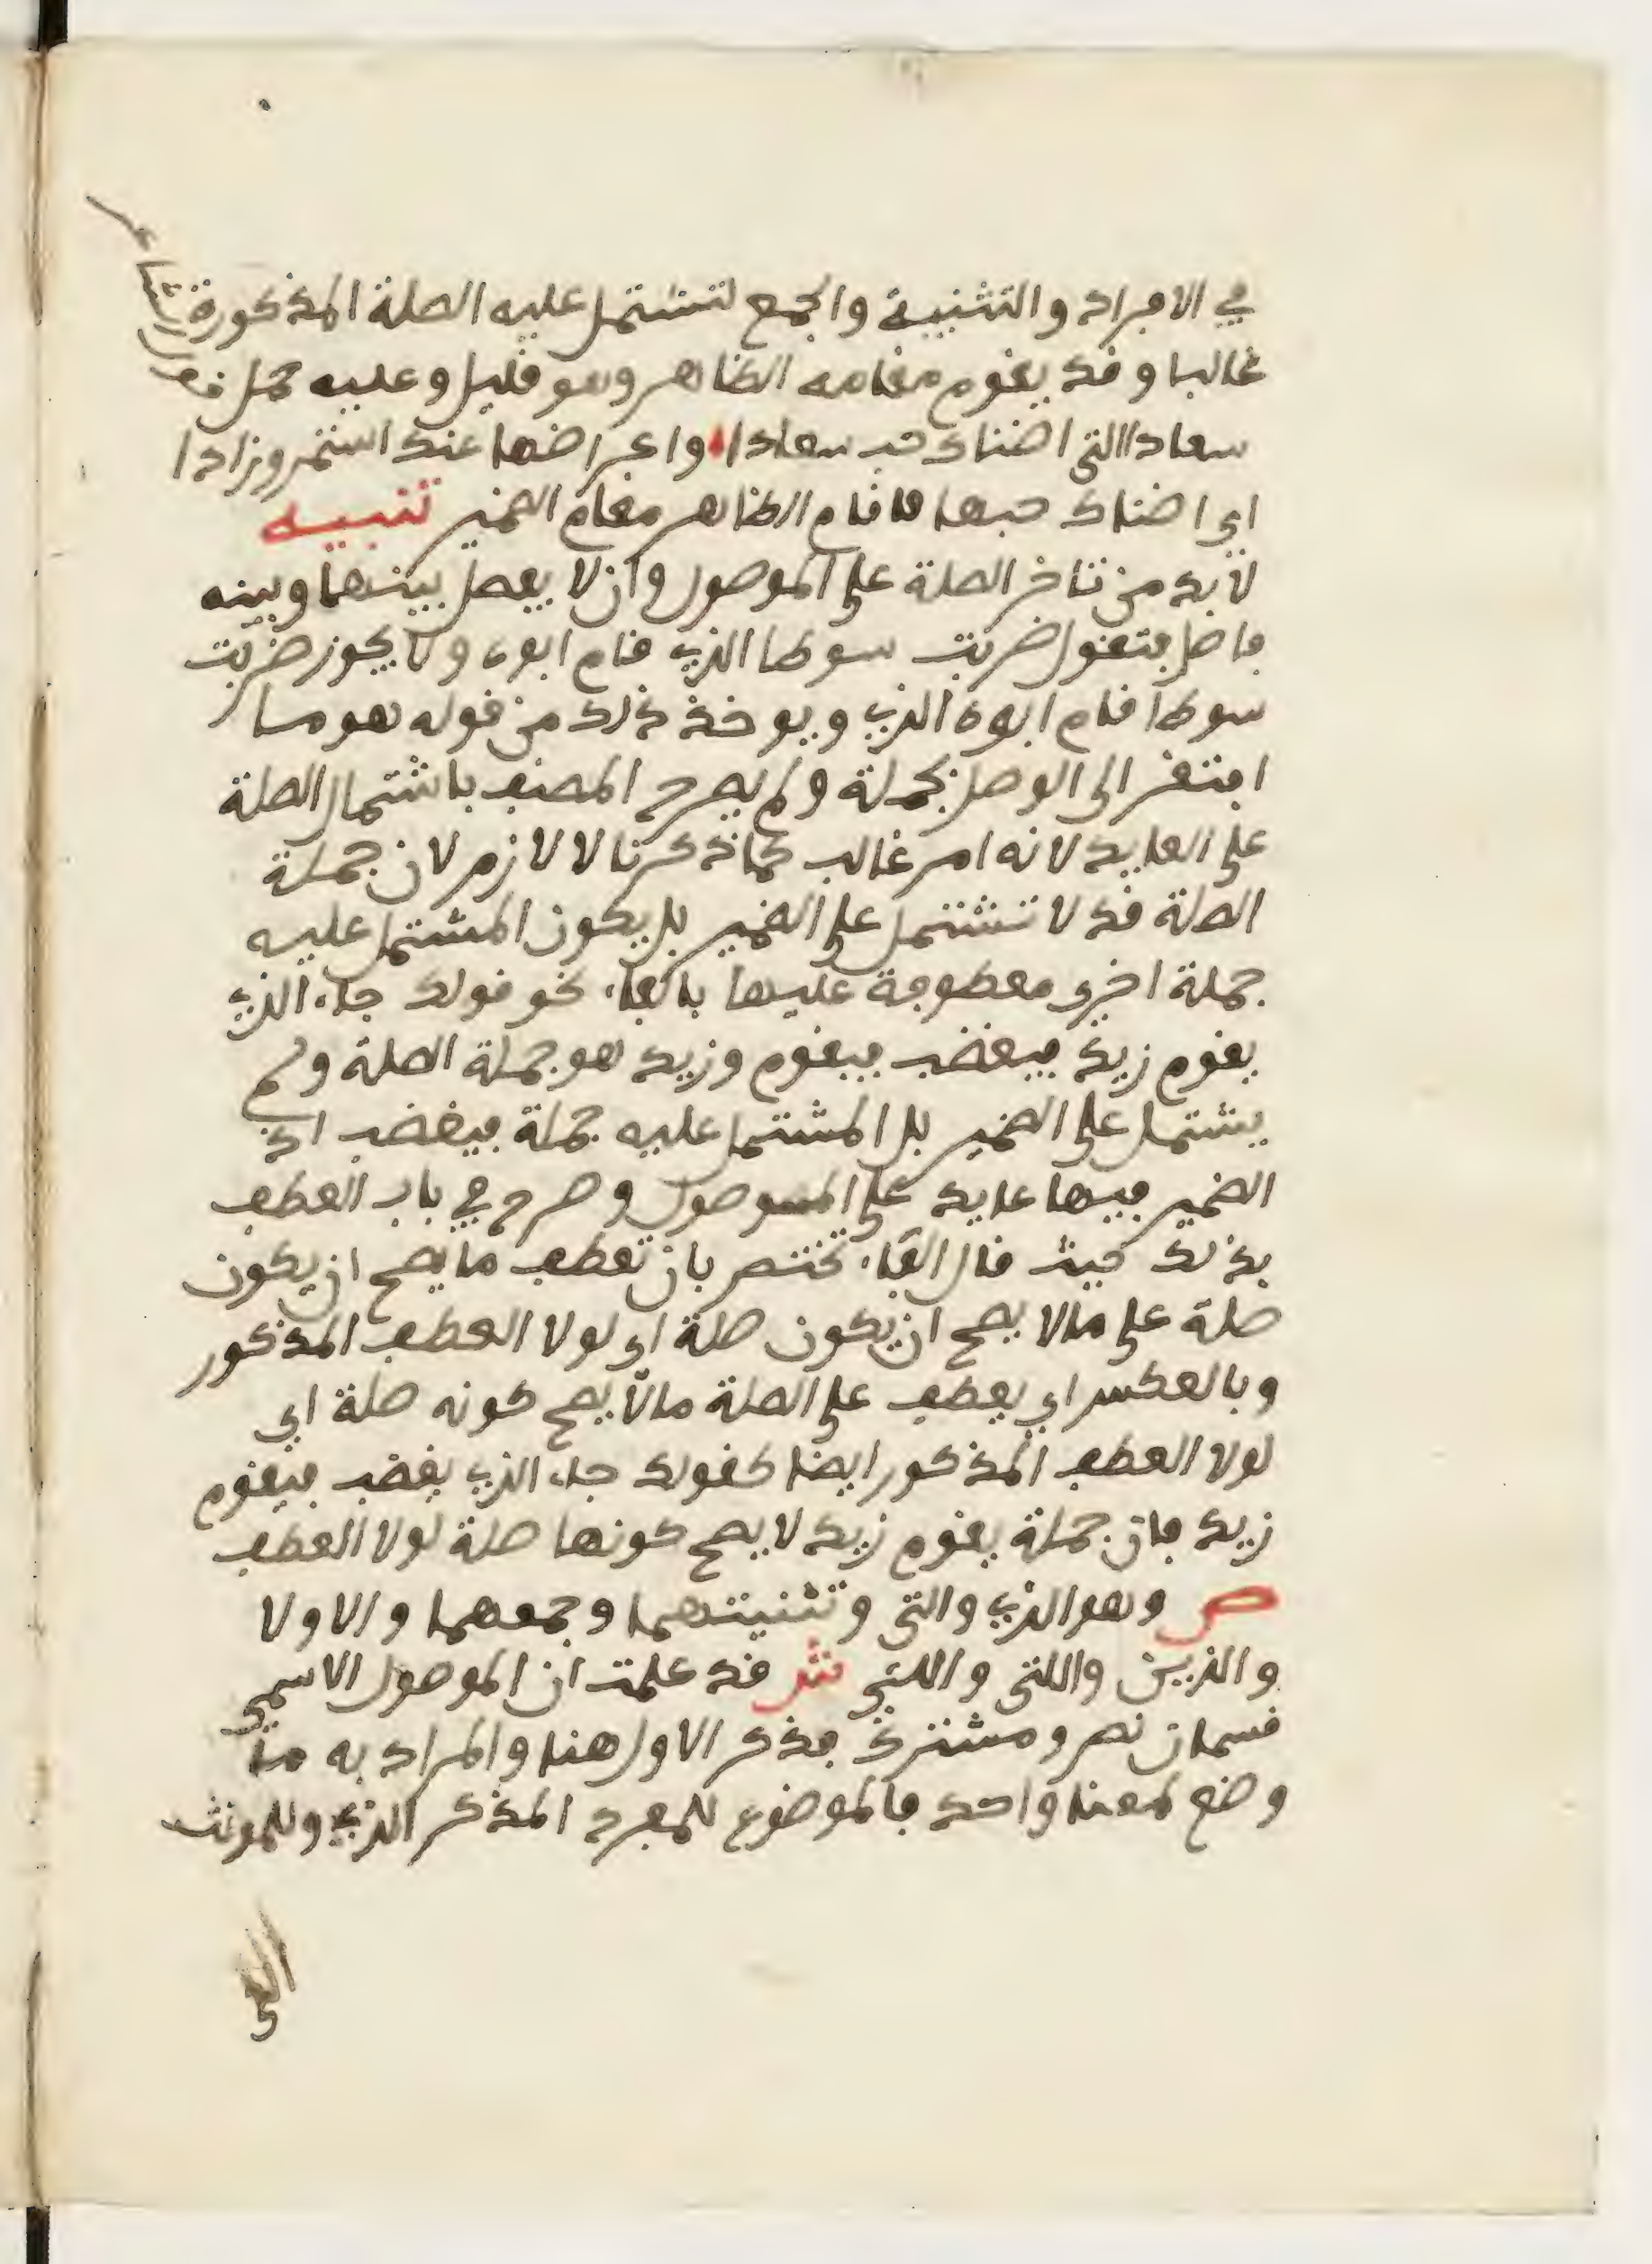 في الافراد والتثنية والجمع لتشتمل عليه الصلة المذكورة
غالبا وقد يقوم مقامه الظاهر وهو قليل وعليه حمل
سعادا التي اضناك حب سعادا واعراضها عنك استمر وزادا
اي اضناك حبها فاقام الظاهر مقام الضمير تنبيه
لا بد من تاخر الصلة على الموصول وان لا يفصل بينهما وبينه
فاصل فتقول ضربت سوطا الذي قام ابوه ولا يجوز ضربت
سوطا قام ابوه الذي ويوخذ ذلك من قوله هو ما
افتقر الى الوصل بجملة ولم يصرح المصنف باشتمال الصلة
على العايد لانه امر غالب كما ذكرنا لا لازم لان جملة
الصلة قد لا تشتمل على الضمير بل يكون المشتمل عليه
جملة اخرى معطوفة عليها بالفاء نحو قولك جاء الذي
يقوم زيد فيغضب فيقوم وزيد هو جملة الصلة ولم
يشتمل على الضمير بل المشتمل عليه جملة فيغضب اذ
الضمير فيها عايد على الموصول وصرح في باب العطف
بذلك حيث قال الفاء تختص بان تعطف ما يصح ان يكون
صلة على ما لا يصح ان يكون صلة اي لولا العطف المذكور
وبالعكس اي يعطف على الصلة ما لا يصح كونه صلة اي
لولا العطف المذكور ايضا كقولك جاء الذي يغضب فيقوم
زيد فان جملة يقوم زيد لا يصح كونها صلة لولا العطف
ص وهو الذي والتي وتثنيتهما وجمعهما والاولا
والذين واللتي واللئي ش قد علمت ان الموصول الاسمي
قسمان نص ومشترك فذكر الاول هنا والمراد به ما
وضع لمعنا واحد فالموضوع للمفرد المذكر الذي وللمونث
التي